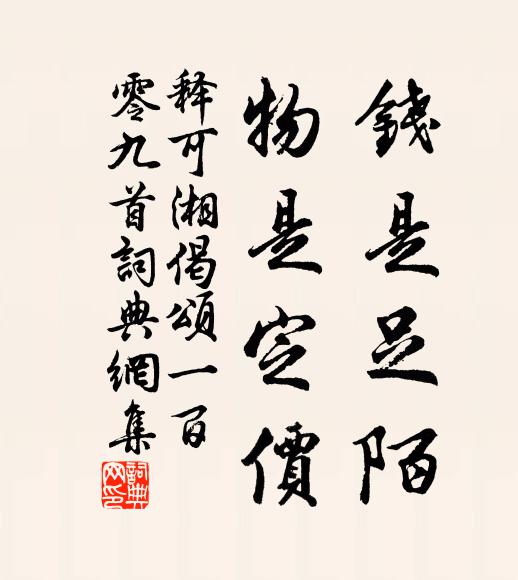 錢是足陌
物是定價
释可湘偈頌一百
零九首詞典網集
詞典
网印